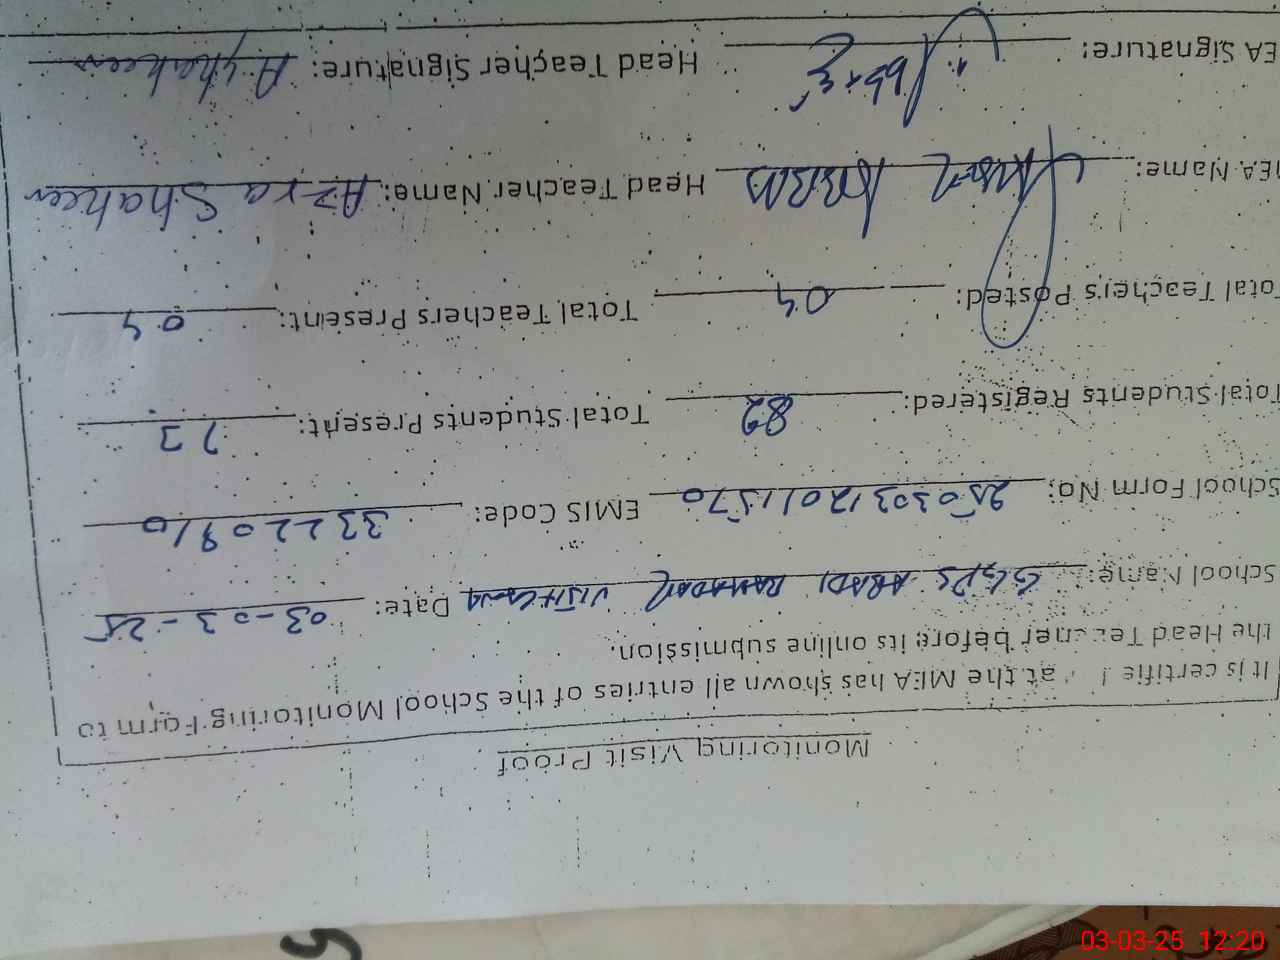 Monitoring Visit Proof
It is certifie at the MEA has shown all entries of the School Monitoring Form to
the Head Teacher before its online submission.
School Name: GGPS ABADI Date: 03-03-25
School Form No: 25030312011570 EMIS Code: 33220910
Total Students Registered: 82 Total Students Present: 73
Total Teachers Posted: 04 Total Teachers Present: 04
EA Name: ABBAS Head Teacher Name: Azra Shaheen
EA Signature: Head Teacher Signature: A.shaheen
5
03-03-25 12:20